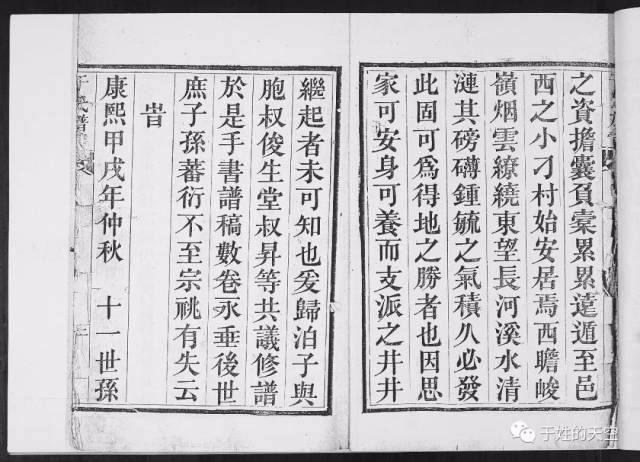 之資擔囊負橐累累蓬遁至邑
西之小刁村始安居焉西瞻峻
嶺烟雲繚繞東望長河溪水清
漣其磅礴鍾毓之氣積久必發
此固可為得地之勝者也因思
家可安身可養而支派之井井
繼起者未可知也爰歸泊子與
胞叔俊生堂叔昇等共議修譜
於是手書譜稿數卷永垂後世
庶子孫蕃衍不至宗祧有失云
旹
康熙甲戌年仲秋 十一世孫
于姓的天空